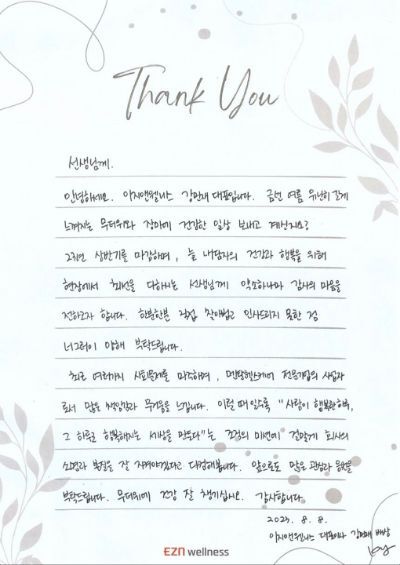 Thank You
선생님께.
안녕하세요. 이지앤웰니스 강민재 대표입니다. 금년 여름 유난히 길게
느껴지는 무더위와 장마에 건강한 일상 보내고 계신지요?
2025년 상반기를 마감하며, 늘 내담자의 건강과 행복을 위해
현장에서 최선을 다하시는 선생님께 약소하나마 감사의 마음을
전하고자 합니다. 한분한분 직접 찾아뵙고 인사드리지 못한 점
너그러이 양해 부탁드립니다.
최근 여러가지 사회문제를 마주하며, 멘탈헬스케어 전문기업의 사업자
로서 많은 책임감과 무게를 느낍니다. 이럴 때일수록 "사람이 행복하며,
그 하루로 행복해지는 세상을 만든다"는 기업의 미션에 걸맞게 회사의
소명과 본질을 잘 지켜야겠다고 다짐해봅니다. 앞으로도 많은 관심과 응원을
부탁드립니다. 무더위에 건강 잘 챙기십시오. 감사합니다.
2025. 8. 8.
이지앤웰니스 대표이사 배상
EZN wellness